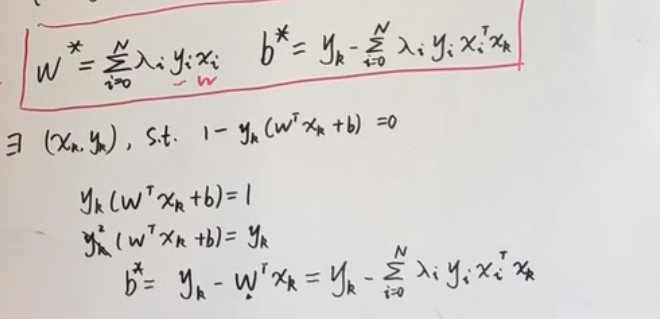 w* = ∑_{i=0}^{N} λ_i y_i x_i   b* = y_k - ∑_{i=0}^{N} λ_i y_i x_i^T x_k
∃ (x_k, y_k), s.t. 1 - y_k (w^T x_k + b) = 0
y_k (w^T x_k + b) = 1
y_k^2 (w^T x_k + b) = y_k
b* = y_k - w^T x_k = y_k - ∑_{i=0}^{N} λ_i y_i x_i^T x_k